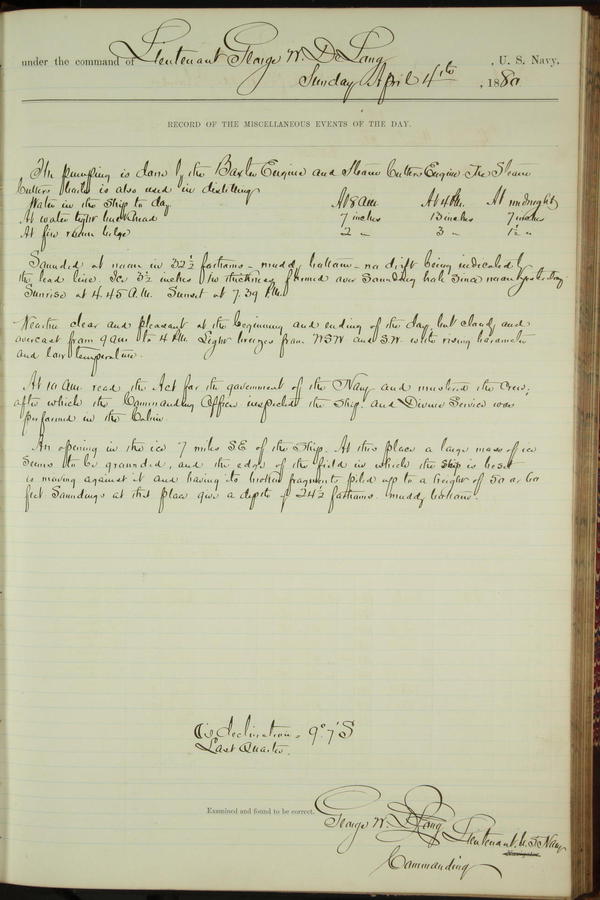 under the command of Lieutenant George W. De Long, U. S. Navy,
Sunday April 4th, 1880
RECORD OF THE MISCELLANEOUS EVENTS OF THE DAY.
The pumping is done by the Baxter Engine and Steam Cutters Engine. The Steam
Cutters boiler is also used in distilling
Water in the Ship to day At 8 AM. At 4 PM. At midnight
At water tight bulkhead 7 inches 13 inches 7 inches
At fire room bilge 2 " 3 " 1½ "
Sounded at noon in 32½ fathoms - muddy bottom - no drift being indicated by
the lead line. Ice 3½ inches in thickness formed over Sounding hole since noon yesterday
Sunrise at 4.45 A.M. Sunset at 7.39 P.M.
Weather clear and pleasant at the beginning and ending of the day, but cloudy and
overcast from 9 am to 4 P.M. Light breezes from WSW and SW. with rising barometer
and low temperature.
At 10 A.M. read the Act for the government of the Navy and mustered the Crew;
after which the Commanding Officer inspected the Ship. and Divine Service was
performed in the Cabin
An opening in the ice 7 miles SE of the Ship. At this place a large mass of ice
seems to be grounded, and the edge of the field in which the ship is beset
is moving against it and having its broken fragments piled up to a height of 50 or 60
feet Soundings at that place give a depth of 24½ fathoms. muddy bottom.
☾'s declination, 9° 7' S
Last Quarter.
Examined and found to be correct.
George W. De Long Lieutenant. U. S. Navy
Navigator.
Commanding